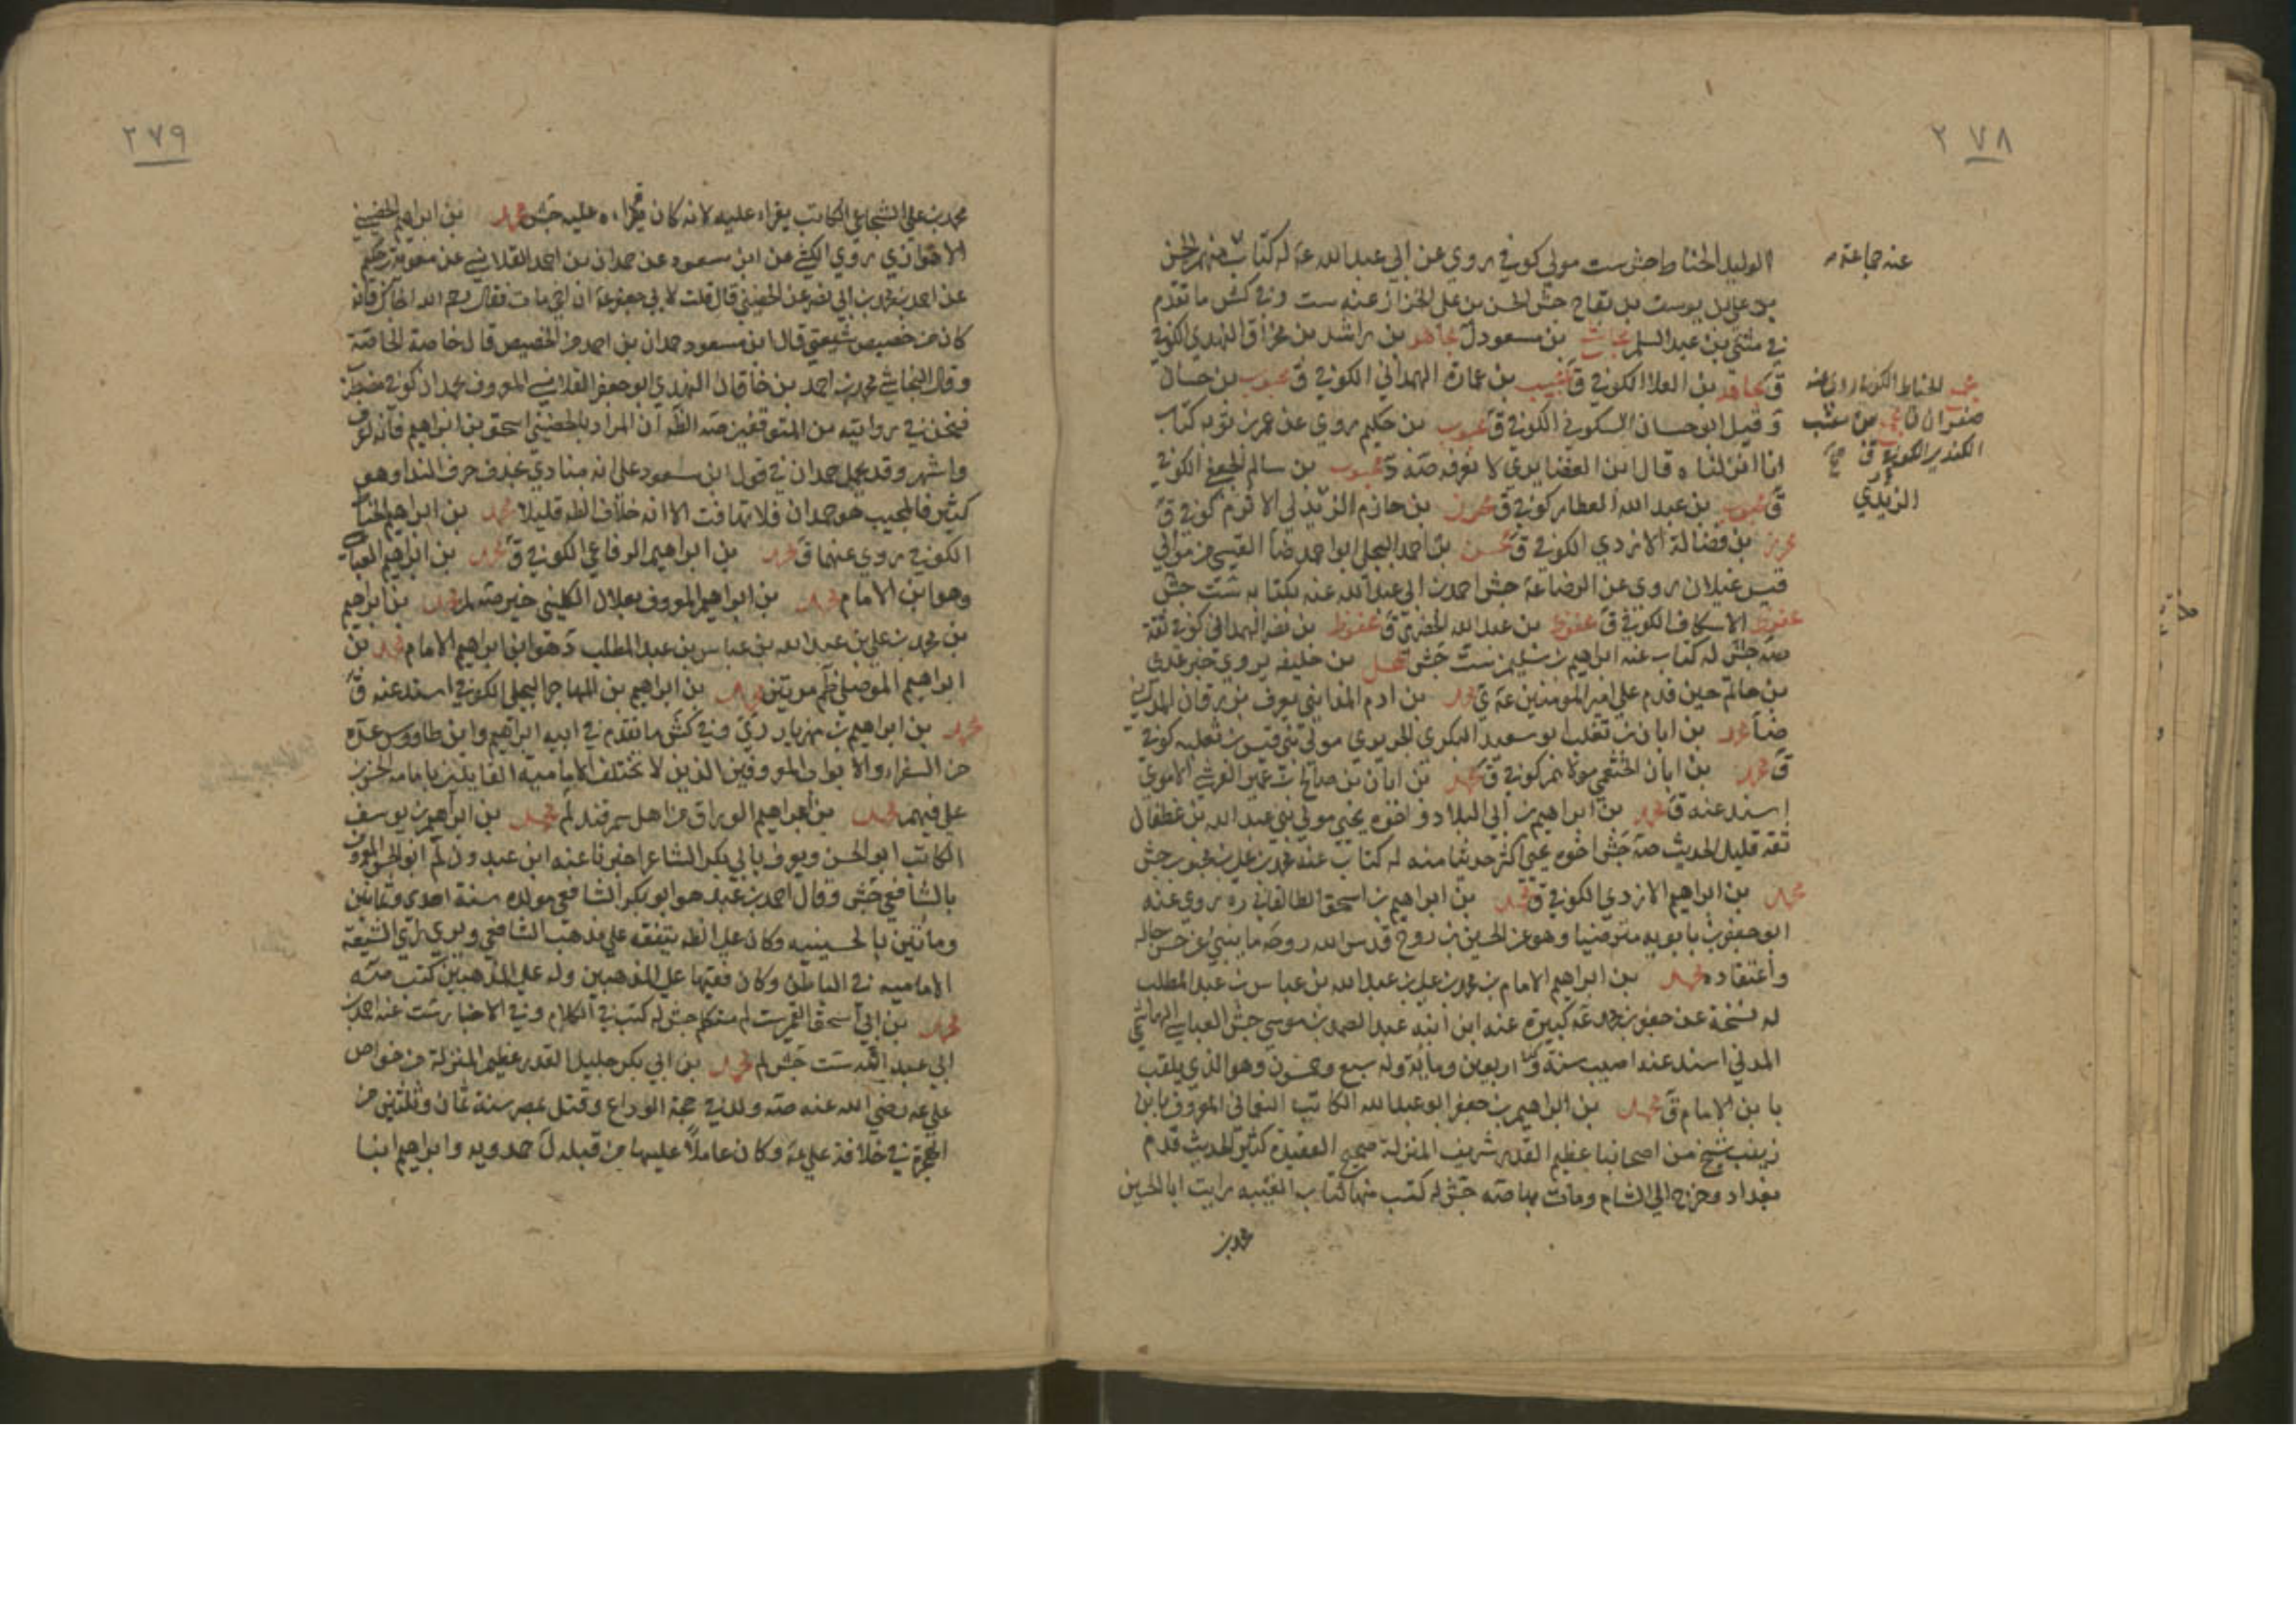 ٢٧٨
الوليد الحناط جش ست مولى كوفي روى عن ابي عبد الله عه له كتاب منهم الحسن
بن علي بن يوسف بن بقاح جش الحسن بن علي الخزاز عنه ست وفي كش ما تقدم
في مثنى بن عبد السلم بن مسعود ل مجاهد بن راشد بن مخراق النهدي الكوفي
ق مجاهد بن العلا الكوفي ق مجيب بن عمارة الهمداني الكوفي ق محبوب بن حسان
وقيل ابو حسان السكوني الكوفي ق محبوب بن حكيم روى عن عمر بن توبه كتاب
انا انزلناه قال ابن الغضايري لا نعرفه صه د محبوب بن سالم الجعفي الكوفي
ق محبوب بن عبد الله العطار كوفي ق محرز بن حازم الزيدلي الا كوفي ق
بن فضالة الازدي الكوفي ق محسن بن احمد البجلي ابو احمد ضا القيسي من موالي
قيس غيلان روى عن الرضا عه جش احمد بن ابي عبد الله عنه بكتابه ست جش
محفوظ الاسكاف الكوفي ق محفوظ بن عبد الله الحضرمي ق محفوظ بن نصر الهمداني كوفي ثقة
صه جش له كتاب عنه ابراهيم بن سليمن ست جش محل بن خليفه يروي خبر عدي
بن حاتم حين قدم على امير المومنين عه ي محمد بن ادم المدايني يعرف بزرقان المدايني
ضا محمد بن ابان بن تغلب ابو سعيد البكري الجريري مولى بني قيس بن ثعلبه كوفي
ق محمد بن ابان الخثعمي مولاهم كوفي ق محمد بن ابان بن صالح بن عمير القرشي الاموي
اسند عنه ق محمد بن ابراهيم بن ابي البلاد واخوه يحيى مولى بني عبد الله بن غطفان
ثقه قليل الحديث صه جش اخوه يحيى اكثر حديثا منه له كتاب عنه محمد بن علي بن محبوب جش
محمد بن ابراهيم الازدي الكوفي ق محمد بن ابراهيم بن اسحق الطالقاني ره روى عنه
ابو جعفر بن بابويه مترضيا وهو عن الحسين بن روح قدس الله روحه ما ينبئ عن حسن حاله
واعتقاده محمد بن ابراهيم الامام بن محمد بن علي بن عبد الله بن عباس بن عبد المطلب
له نسخة عن جعفر بن محمد عه كبيرة عنه ابن ابنه عبد الصمد بن موسى جش العباسي الهاشمي
المدني اسند عنه اصيب سنة اربعين ومايه وله سبع وخمسون وهو الذي يلقب
بابن الامام ق محمد بن ابراهيم بن جعفر ابو عبد الله الكاتب النعماني المعروف بابن
زينب شيخ من اصحابنا عظيم القدر شريف المنزلة صحيح العقيدة كثير الحديث قدم
بغداد وخرج الى الشام ومات بها صه جش له كتب منها كتاب الغيبه رايت ابا الحسين
محمد بن
عنه جماعة
الحناط الكوفي روى عنه
صفوان ق بن
الكندي الكوفي ق
الزيدي
٢٧٩
محمد بن علي الشجاعي الكاتب يقراء عليه لانه كان قراه عليه جش محمد بن ابراهيم الحضيني
الاهوازي روى الكشي عن ابن مسعود عن حمدان بن احمد القلانسي عن معوية بن حكيم
عن احمد بن محمد بن ابي نصر عن الحضيني قال قلت لابي جعفر عه ان اخي مات فقال رحم الله اخاك فانه
كان من خصيص شيعتي قال ابن مسعود حمدان بن احمد من الخصيص قال خاصة الخاصة
وقال النجاشي محمد بن احمد بن خاقان النهدي ابو جعفر القلانسي المعروف بحمدان كوفي مضطرب
فنحن في روايته من المتوقفين صه الظ ان المراد بالحضيني اسحق بن ابراهيم فانه اعرف
واشهر وقد يحمل حمدان في قول ابن مسعود على انه منادي بحذف حرف الندا وهو
كثير فالمجيب هو حمدان فلا تهافت الا انه خلاف الظ قليلا محمد بن ابراهيم الحناط
الكوفي روى عنهما ق محمد بن ابراهيم الرفاعي الكوفي ق محمد بن ابراهيم العباسي
وهو ابن الامام محمد بن ابراهيم المعروف بعلان الكليني خير صه لم محمد بن ابراهيم
بن محمد بن علي بن عبد الله بن عباس بن عبد المطلب د هو ابن ابراهيم الامام محمد بن
ابراهيم الموصلي ظم مرتين محمد بن ابراهيم بن المهاجر البجلي الكوفي اسند عنه ق
محمد بن ابراهيم بن مهزيار ري وفي كش ما تقدم في ابيه ابراهيم وابن طاووس عده
من السفراء والابواب المعروفين الذين لا تختلف الامامية القايلين بامامه الحسن بن
علي فيهم محمد بن ابراهيم الوراق من اهل سمرقند لم محمد بن ابراهيم بن يوسف
الكاتب ابو الحسن ويعرف بابي بكر الشاعر اخبرنا عنه ابن عبدون لم ابو الحسن المعروف
بالشافعي جش وقال احمد بن عبد هو ابو بكر الشافعي مولده سنة احدى وثمانين
ومائتين بالحسينيه وكان على الظ يتفقه على مذهب الشافعي ويرى راي الشيعة
الاماميه في الباطن وكان فقيها على المذهبين وله على المذهبين كتب صه
محمد بن ابي اسحق القمي ست لم متكلم جش له كتب في الكلام وفي الاخبار ست عنه احمد بن
ابي عبد الله ست جش لم محمد بن ابي بكر جليل القدر عظيم المنزلة من خواص
علي عه رضي الله عنه صه ولد في حجة الوداع وقتل بمصر سنة ثمان وثلثين من
الهجرة في خلافة علي عه وكان عاملا عليها من قبله ل حمدويه وابراهيم ابنا